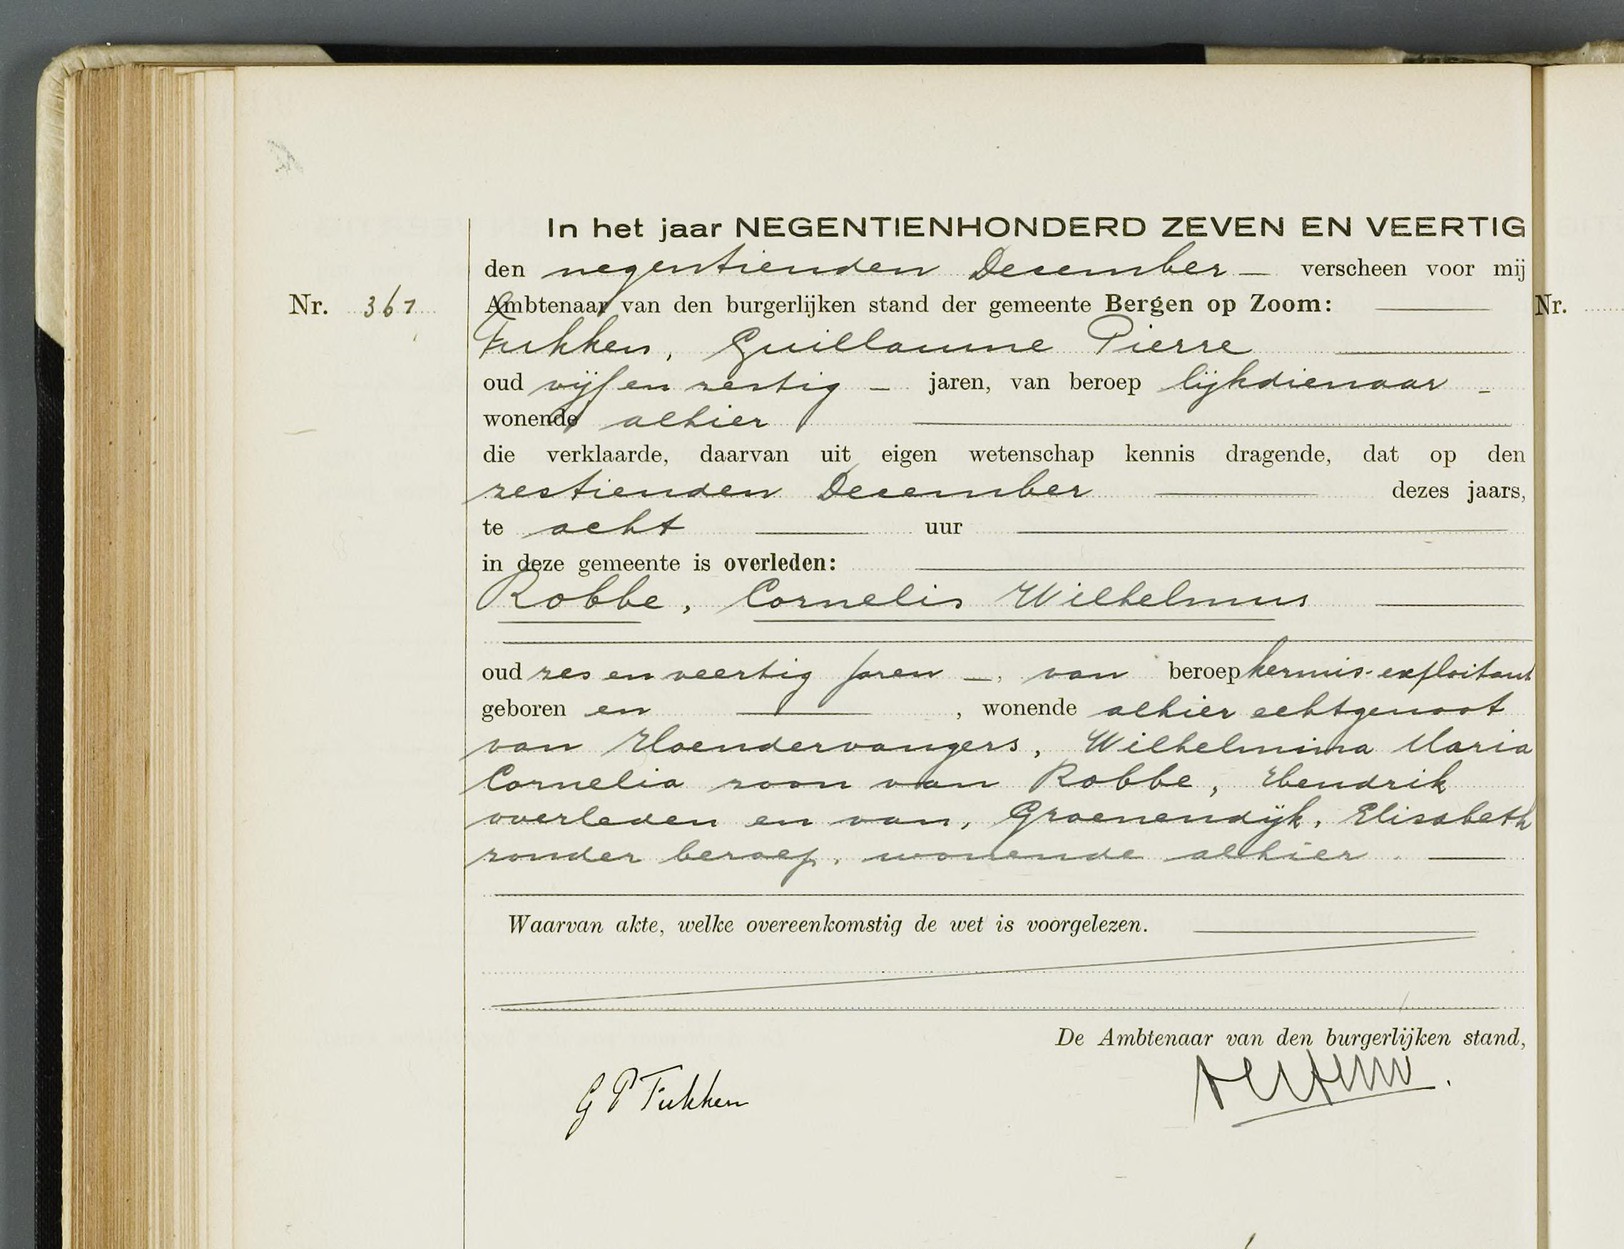 In het jaar NEGENTIENHONDERD ZEVEN EN VEERTIG
den negentienden December — verscheen voor mij
Nr. 367 Ambtenaar van den burgerlijken stand der gemeente Bergen op Zoom:
Nr.
Tukken, Guillaume Pierre
oud vijf en zestig — jaren, van beroep lijkdienaar —
wonende alhier
die verklaarde, daarvan uit eigen wetenschap kennis dragende, dat op den
zestienden December dezes jaars,
te acht uur
in deze gemeente is overleden:
Robbe, Cornelis Wilhelmus
oud zes en veertig jaren —, van beroep kermis-exploitant
geboren en , wonende alhier echtgenoot
van Hoendervangers, Wilhelmina Maria
Cornelia zoon van Robbe, Hendrik
overleden en van, Groenendijk, Elisabeth
zonder beroep, wonende alhier.
Waarvan akte, welke overeenkomstig de wet is voorgelezen.
De Ambtenaar van den burgerlijken stand,
G P Tukken